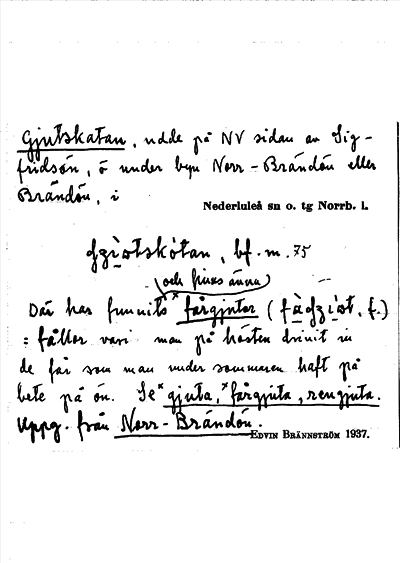 Gjutskatan, udde på NV sidan av Sig-
fridsön, ö under byn Norr-Brändön eller
Brändön, i
Nederluleå sn o. tg Norrb. l.
gzi̯otskȯtan, bf. m. 75
(och finns ännu)
Där har funnits * fårgjutor (fȧgzi̯ȯt, f.)
: fållor vari man på hösten drivit in
de får som man under sommaren haft på
bete på ön. Se * gjuta, * fårgjuta, rengjuta.
Uppg. från Norr-Brändön.
EDVIN BRÄNNSTRÖM 1937.